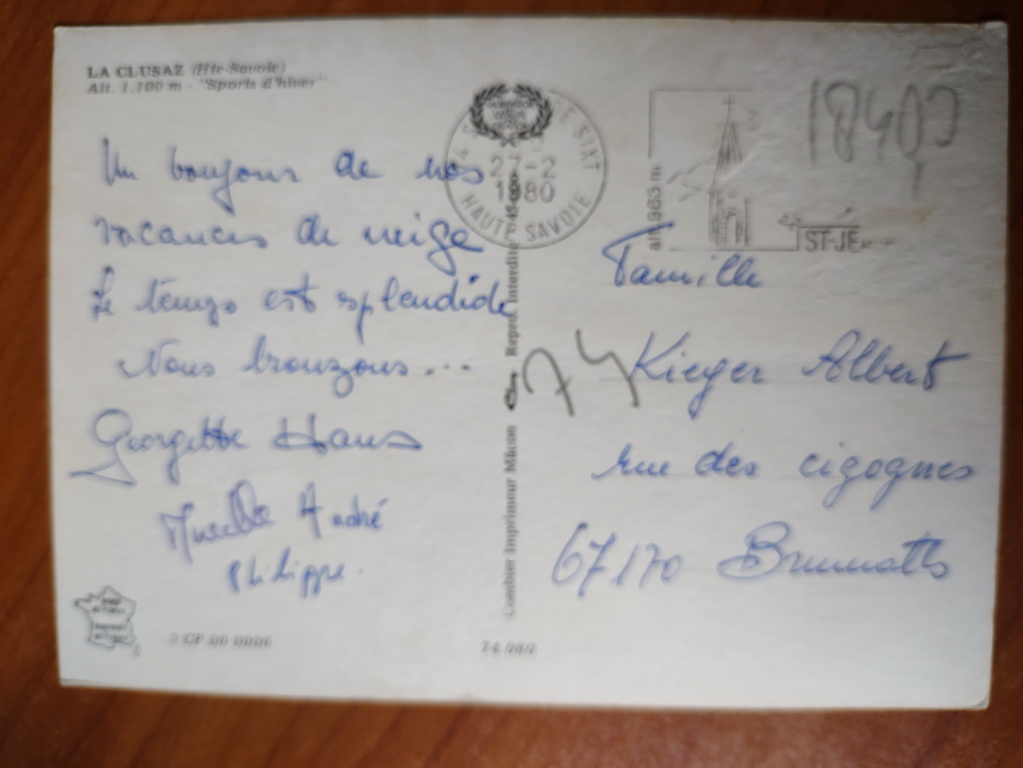 LA CLUSAZ (Hte-Savoie)
Alt. 1.100 m - "Sports d'hiver"
Un bonjour de nos
vacances de neige
Le temps est splendide
Nous bronzons...
Georgette Hans
Mireille André
Philippe.
27-2
1980
HAUTE SAVOIE
alt. 963 m
ST-JE
18400
Famille
Kieger Albert
rue des cigognes
67170 Brumath
74
Combier Imprimeur Mâcon
Repro. Interdite
74.080